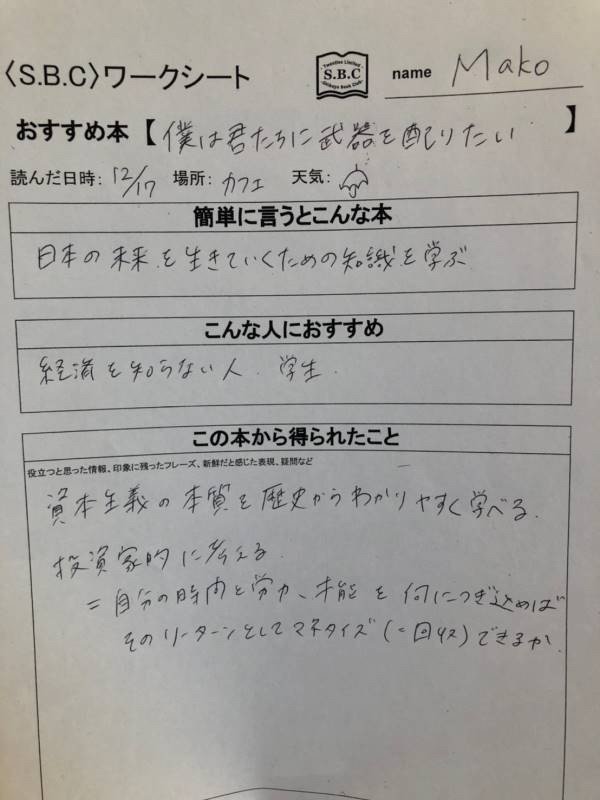 〈S.B.C〉ワークシート
Twenties Limited
S.B.C
Book Club
name Mako
おすすめ本【僕は君たちに武器を配りたい】
読んだ日時: 12/17 場所: カフェ 天気:
簡単に言うとこんな本
日本の未来を生きていくための知識を学ぶ
こんな人におすすめ
経済を知らない人. 学生.
この本から得られたこと
役立つと思った情報、印象に残ったフレーズ、新鮮だと感じた表現、疑問など
資本主義の本質を歴史からわかりやすく学べる.
投資家的に考える
=自分の時間と労力、才能を何につぎ込めば
そのリターンとしてマネタイズ(=回収)できるか.